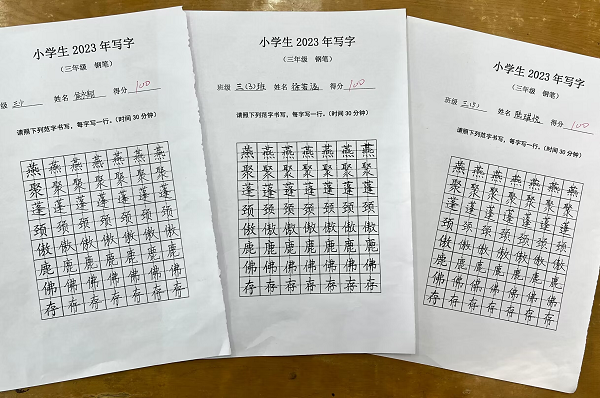 小学生 2023 年写字
（三年级 钢笔）
级 姓名 得分 100
请照下列范字书写，每字写一行。（时间 30 分钟）
燕 燕 燕 燕 燕 燕 燕
聚 聚 聚 聚 聚 聚 聚
蓬 蓬 蓬 蓬 蓬 蓬 蓬
颈 颈 颈 颈 颈 颈 颈
傲 傲 傲 傲 傲 傲 傲
鹿 鹿 鹿 鹿 鹿 鹿 鹿
佛 佛 佛 佛 佛 佛 佛
存 存 存 存 存 存 存
小学生 2023 年写字
（三年级 钢笔）
班级 三(3)班 姓名 徐若涵 得分 100
请照下列范字书写，每字写一行。（时间 30 分钟）
燕 燕 燕 燕 燕 燕 燕
聚 聚 聚 聚 聚 聚 聚
蓬 蓬 蓬 蓬 蓬 蓬 蓬
颈 颈 颈 颈 颈 颈 颈
傲 傲 傲 傲 傲 傲 傲
鹿 鹿 鹿 鹿 鹿 鹿 鹿
佛 佛 佛 佛 佛 佛 佛
存 存 存 存 存 存 存
小学生 2023 年写字
（三年级 钢笔）
班级 三(5) 姓名 得分 100
请照下列范字书写，每字写一行。（时间 30 分钟）
燕 燕 燕 燕 燕 燕 燕
聚 聚 聚 聚 聚 聚 聚
蓬 蓬 蓬 蓬 蓬 蓬 蓬
颈 颈 颈 颈 颈 颈 颈
傲 傲 傲 傲 傲 傲 傲
鹿 鹿 鹿 鹿 鹿 鹿 鹿
佛 佛 佛 佛 佛 佛 佛
存 存 存 存 存 存 存